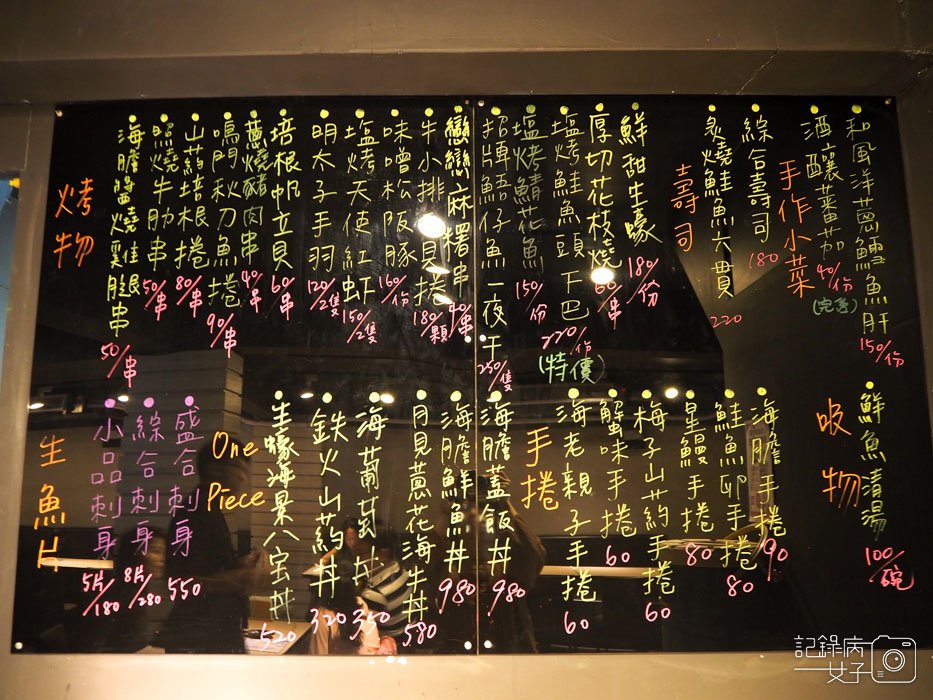 和風洋蔥鱈魚肝 150/份
手作小菜
酒釀蕃茄 40/份 (完售)
壽司
綜合壽司 180
炙燒鮭魚六貫 220
鮮甜生蠔 180/份
厚切花枝燒 60/串
塩烤鮭魚頭下巴 220/份 (特價)
塩烤鯖花魚 150/份
招牌鯃仔魚一夜干 250/隻
戀戀麻糬串 40/串
牛小排貝捲 180/顆
味噌松阪豚 160/份
塩烤天使紅虾 150/2隻
明太子手羽 120/2隻
培根帆立貝 60/串
蔥燒豬肉串 40/串
鳴門秋刀魚捲 90/串
山葯培根捲 80/串
照燒牛肋串 50/串
海膽醬燒雞腿串 50/串
烤物
吸物
鮮魚清湯 100/碗
海膽手捲 90
鮭魚卵手捲 80
星鰻手捲 80
梅子山葯手捲 60
蟹味手捲 60
海老親子手捲 60
手捲
海膽蓋飯丼 980
海膽鮮魚丼 980
月見蔥花海牛丼 580
海葡萄丼 350
鉄火山葯丼 320
生蠔海景八宝丼 520
One
Piece
盛合刺身 550
綜合刺身 8片/280
小品刺身 5片/180
生魚片
記錄病
女子